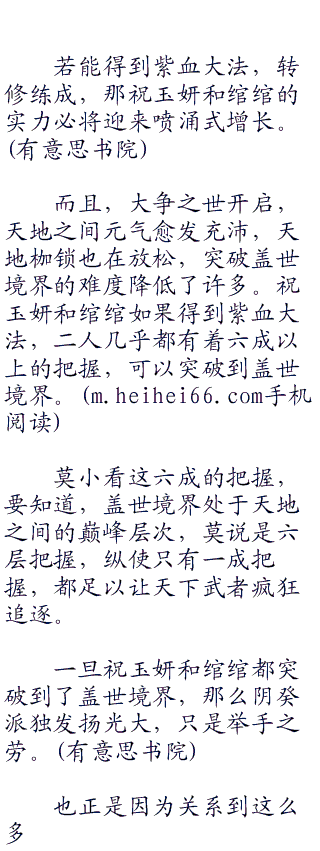 若能得到紫血大法，转
修练成，那祝玉妍和绾绾的
实力必将迎来喷涌式增长。
(有意思书院)
而且，大争之世开启，
天地之间元气愈发充沛，天
地枷锁也在放松，突破盖世
境界的难度降低了许多。祝
玉妍和绾绾如果得到紫血大
法，二人几乎都有着六成以
上的把握，可以突破到盖世
境界。(m.heihei66.com手机
阅读)
莫小看这六成的把握，
要知道，盖世境界处于天地
之间的巅峰层次，莫说是六
层把握，纵使只有一成把
握，都足以让天下武者疯狂
追逐。
一旦祝玉妍和绾绾都突
破到了盖世境界，那么阴癸
派独发扬光大，只是举手之
劳。(有意思书院)
也正是因为关系到这么
多